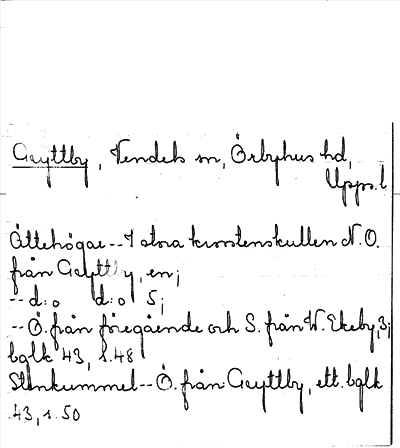 Gryttby, Vendels sn, Örbyhus hd,
Upps. l
Ättehögar -- I stora krosstenskullen N.O.
från Gryttby, en;
-- d:o d:o 5;
-- Ö. från föregående och S. från W. Ekeby, 3;
bglk 43, s. 48
Stenkummel -- Ö. från Gryttby, ett. bglk
43, s. 50